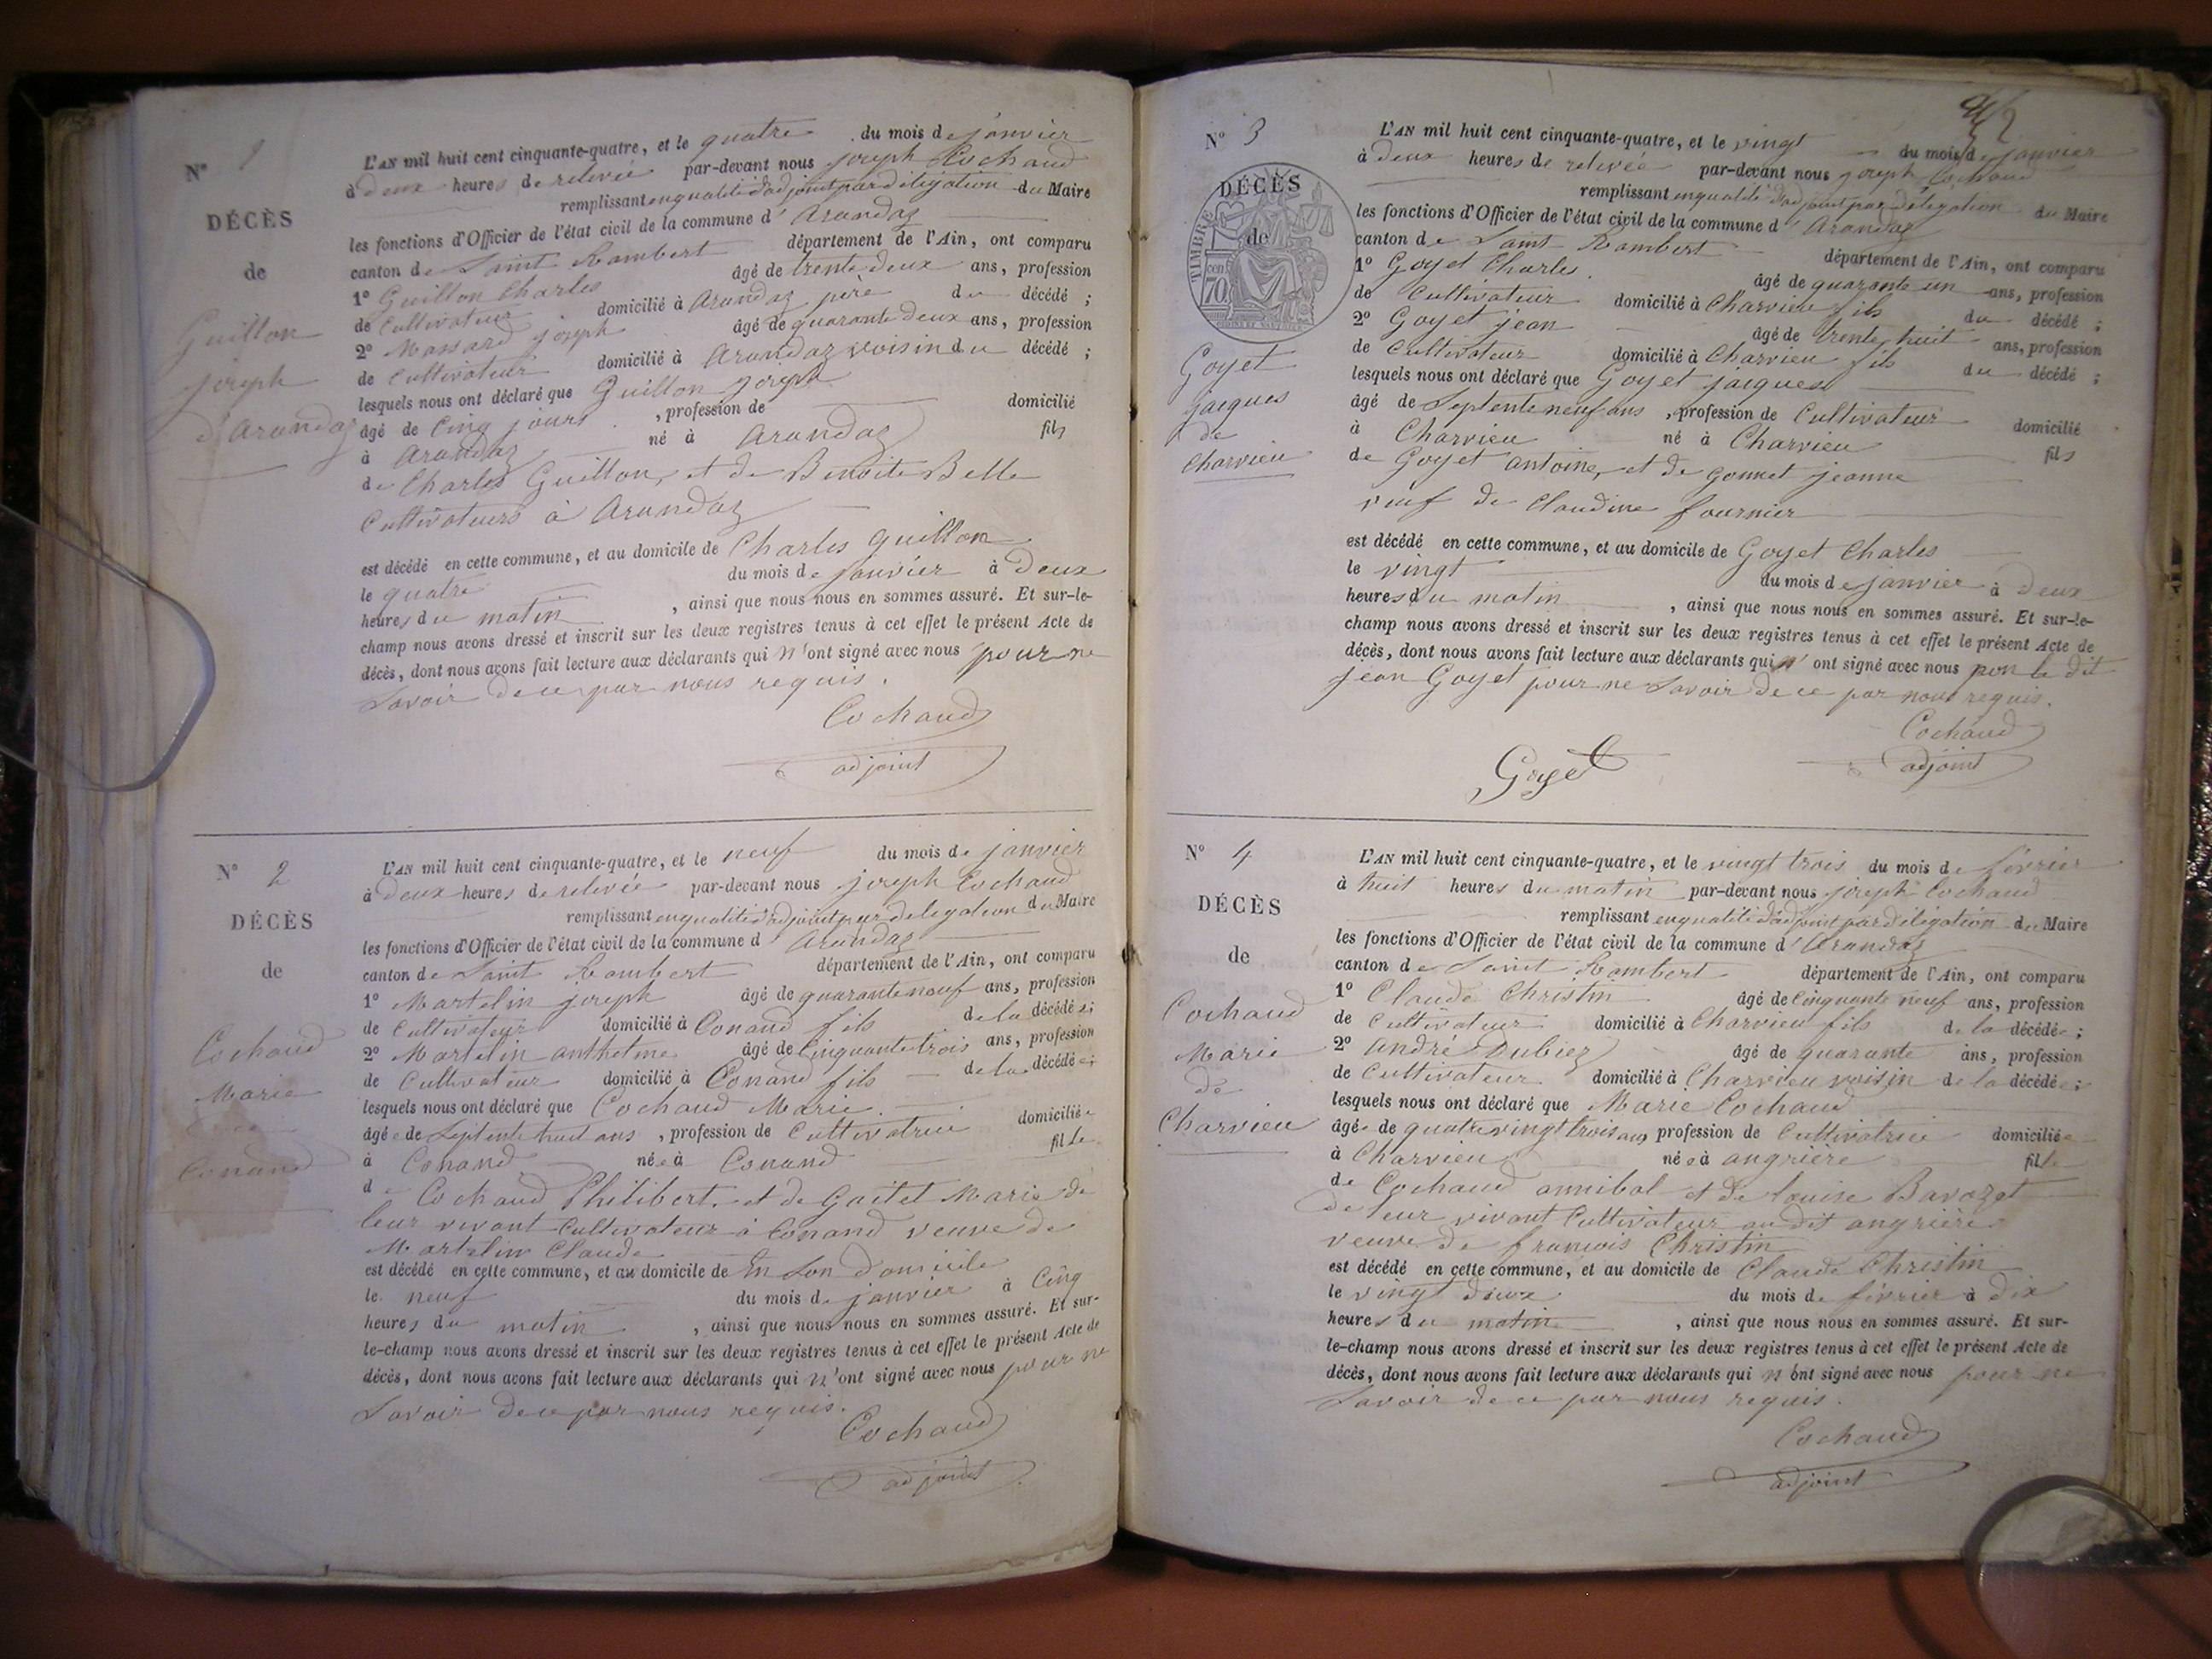 N° 1
DÉCÈS
de
Guillon
joseph
d'Arandaz
L'AN mil huit cent cinquante-quatre, et le quatre du mois de janvier
à deux heures de relevée par-devant nous joseph Cochaud
remplissant en qualité d'adjoint par délégation du Maire
les fonctions d'Officier de l'état civil de la commune d'Arandaz
canton de Saint Rambert département de l'Ain, ont comparu
1° Guillon Charles âgé de trente deux ans, profession
de Cultivateur domicilié à Arandaz père du décédé ;
2° Massard joseph âgé de quarante deux ans, profession
de Cultivateur domicilié à Arandaz voisin du décédé ;
lesquels nous ont déclaré que Guillon joseph
âgé de Cinq jours , profession de domicilié
à Arandaz né à Arandaz fils
de Charles Guillon, et de Benoite Belle
Cultivateurs à Arandaz
est décédé en cette commune, et au domicile de Charles guillon
le quatre du mois de janvier à deux
heures du matin , ainsi que nous nous en sommes assuré. Et sur-le-
champ nous avons dressé et inscrit sur les deux registres tenus à cet effet le présent Acte de
décès, dont nous avons fait lecture aux déclarants qui n'ont signé avec nous pour ne
Savoir de ce par nous requis.
Cochaud
adjoint
N° 2
DÉCÈS
de
Cochaud
Marie
de
Conand
L'AN mil huit cent cinquante-quatre, et le neuf du mois de janvier
à deux heures de relevée par-devant nous joseph Cochaud
remplissant en qualité d'adjoint par delegation du Maire
les fonctions d'Officier de l'état civil de la commune d'Arandaz
canton de Saint Rambert département de l'Ain, ont comparu
1° Martelin joseph âgé de quarante neuf ans, profession
de Cultivateur domicilié à Conand fils de la décédée ;
2° Martelin anthelme âgé de Cinquante trois ans, profession
de Cultivateur domicilié à Conand fils de la décédée ;
lesquels nous ont déclaré que Cochaud Marie
âgée de Septente huit ans , profession de Cultivatrice domiciliée
à Conand née à Conand fille
de Cochaud Philibert et de Gaitet Marie de
leur vivant Cultivateur à Conand veuve de
Martelin Claude
est décédé en cette commune, et au domicile de En Son domicile
le neuf du mois de janvier à Cinq
heures du matin , ainsi que nous nous en sommes assuré. Et sur-
le-champ nous avons dressé et inscrit sur les deux registres tenus à cet effet le présent Acte de
décès, dont nous avons fait lecture aux déclarants qui n'ont signé avec nous pour ne
Savoir de ce par nous requis.
Cochaud
adjoint
N° 3
DÉCÈS
de
TIMBRE
70
Goyet
jacques
de
Charvieu
L'AN mil huit cent cinquante-quatre, et le vingt du mois de janvier
à deux heures de relevée par-devant nous joseph Cochaud
remplissant en qualité d'adjoint par délégation du Maire
les fonctions d'Officier de l'état civil de la commune d'Arandaz
canton de Saint Rambert département de l'Ain, ont comparu
1° Goyet Charles âgé de quarante un ans, profession
de Cultivateur domicilié à Charvieu fils du décédé ;
2° Goyet jean âgé de trente huit ans, profession
de Cultivateur domicilié à Charvieu fils du décédé ;
lesquels nous ont déclaré que Goyet jacques
âgé de Septente neuf ans , profession de Cultivateur domicilié
à Charvieu né à Charvieu fils
de Goyet antoine, et de gonnet jeanne
veuf de Claudine fournier
est décédé en cette commune, et au domicile de Goyet Charles
le vingt du mois de janvier à deux
heures du matin , ainsi que nous nous en sommes assuré. Et sur-le-
champ nous avons dressé et inscrit sur les deux registres tenus à cet effet le présent Acte de
décès, dont nous avons fait lecture aux déclarants qui ont signé avec nous non le dit
jean Goyet pour ne Savoir de ce par nous requis.
Cochaud
adjoint
Goyet
N° 4
DÉCÈS
de
Cochaud
Marie
de
Charvieu
L'AN mil huit cent cinquante-quatre, et le vingt trois du mois de février
à huit heures du matin par-devant nous joseph Cochaud
remplissant en qualité d'adjoint par délégation du Maire
les fonctions d'Officier de l'état civil de la commune d'Arandaz
canton de Saint Rambert département de l'Ain, ont comparu
1° Claude Christin âgé de Cinquante neuf ans, profession
de Cultivateur domicilié à Charvieu fils de la décédée ;
2° André Dubiez âgé de quarante ans, profession
de Cultivateur domicilié à Charvieu voisin de la décédée ;
lesquels nous ont déclaré que Marie Cochaud
âgée de quatre vingt trois ans profession de Cultivatrice domiciliée
à Charvieu née à angriere fille
de Cochaud annibal et de louise Bavozet
de leur vivant Cultivateur au dit angriere
veuve de francois Christin
est décédé en cette commune, et au domicile de Claude Christin
le vingt deux du mois de février à dix
heures du matin , ainsi que nous nous en sommes assuré. Et sur-
le-champ nous avons dressé et inscrit sur les deux registres tenus à cet effet le présent Acte de
décès, dont nous avons fait lecture aux déclarants qui n'ont signé avec nous pour ne
Savoir de ce par nous requis.
Cochaud
adjoint